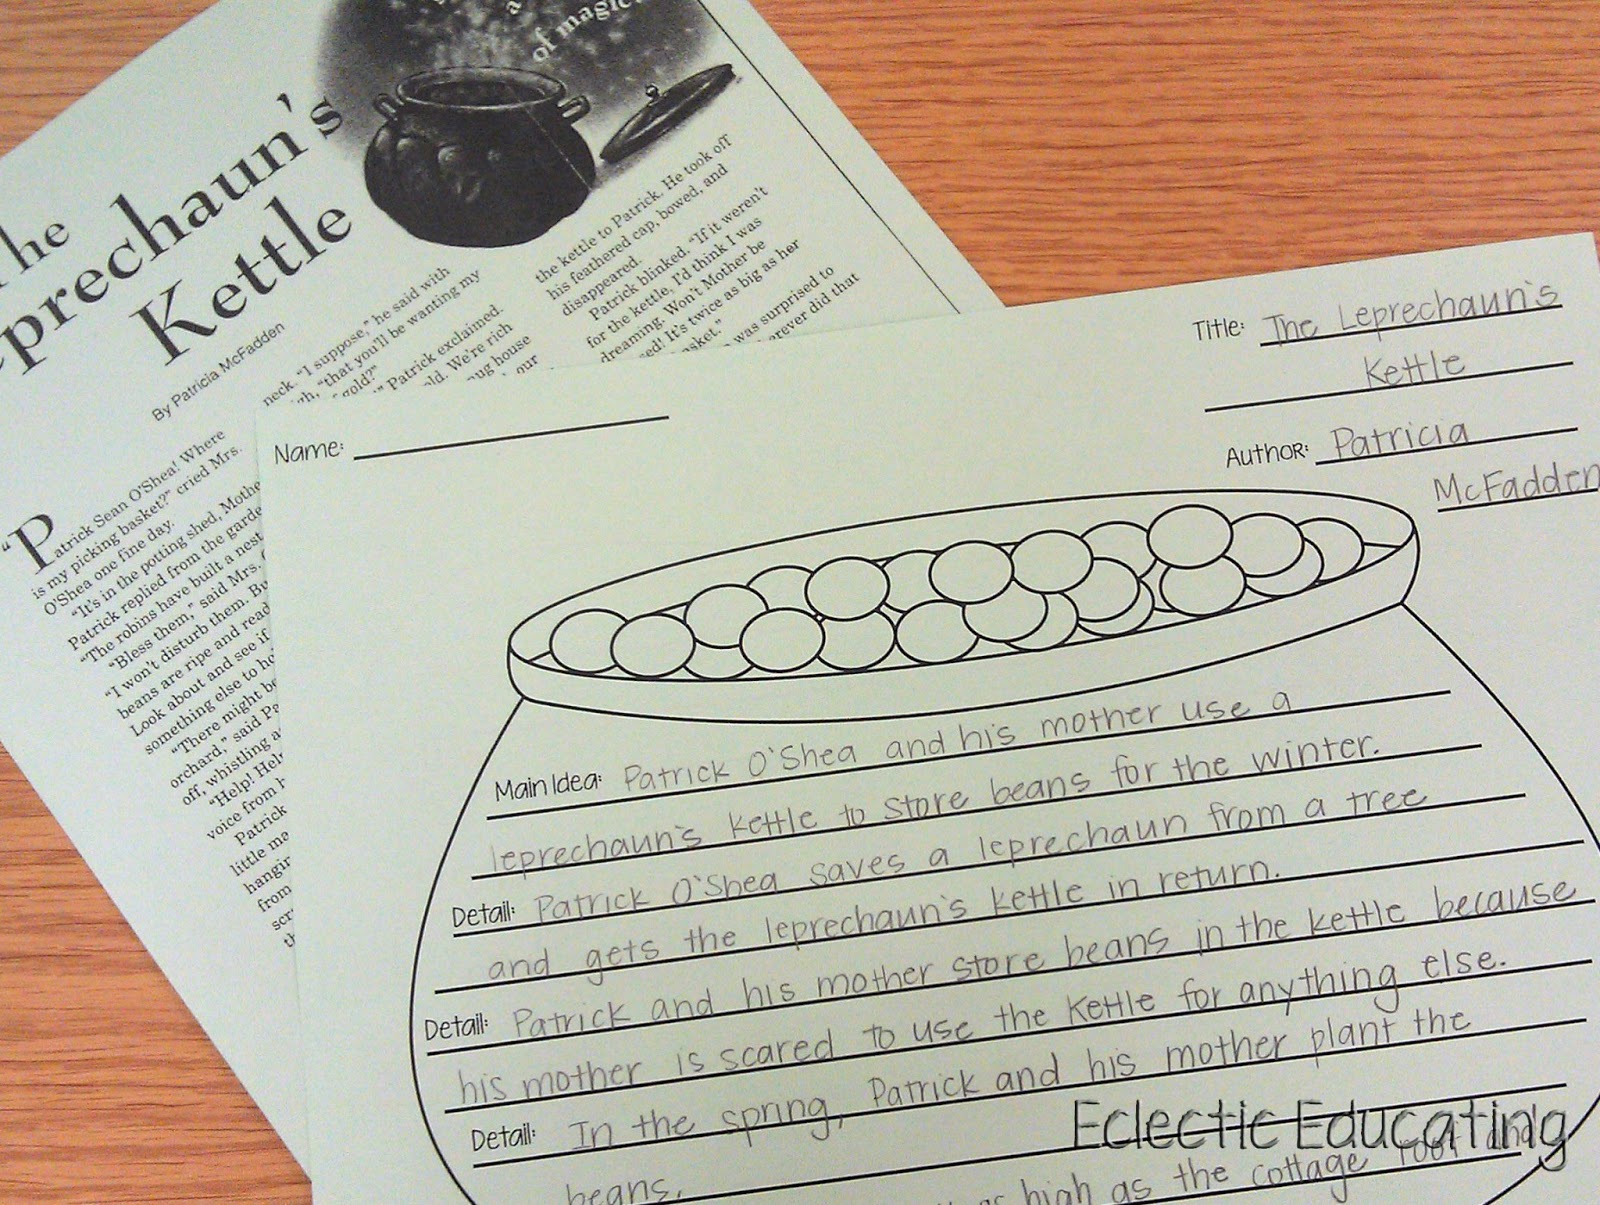 a
of magic.
The
prechaun's
Kettle
By Patricia McFadden
"Patrick Sean O'Shea! Where
is my picking basket?" cried Mrs.
O'Shea one fine day.
"It's in the potting shed, Mothe
Patrick replied from the garde
"The robins have built a nest
"Bless them," said Mrs.
"I won't disturb them. Bu
beans are ripe and read
Look about and see if
something else to ho
"There might be
orchard," said Pa
off, whistling a
"Help! Hel
voice from
Patrick
little ma
hangin
from
scr
th
neck. "I suppose," he said with
"that you'll be wanting my
gold?"
Patrick exclaimed.
old. We're rich
house
our
the kettle to Patrick. He took off
his feathered cap, bowed, and
disappeared.
Patrick blinked. "If it weren't
for the kettle, I'd think I was
dreaming. Won't Mother be
ed! It's twice as big as her
basket."
was surprised to
erever did that
Name:
Title: The Leprechaun's
Kettle
Author: Patricia
McFadden
Main Idea: Patrick O'Shea and his mother use a
leprechaun's kettle to store beans for the winter.
Detail: Patrick O'Shea saves a leprechaun from a tree
and gets the leprechaun's kettle in return.
Detail: Patrick and his mother store beans in the kettle because
his mother is scared to use the kettle for anything else.
Detail: In the spring, Patrick and his mother plant the
beans.
high as the cottage roof and
Eclectic Educating